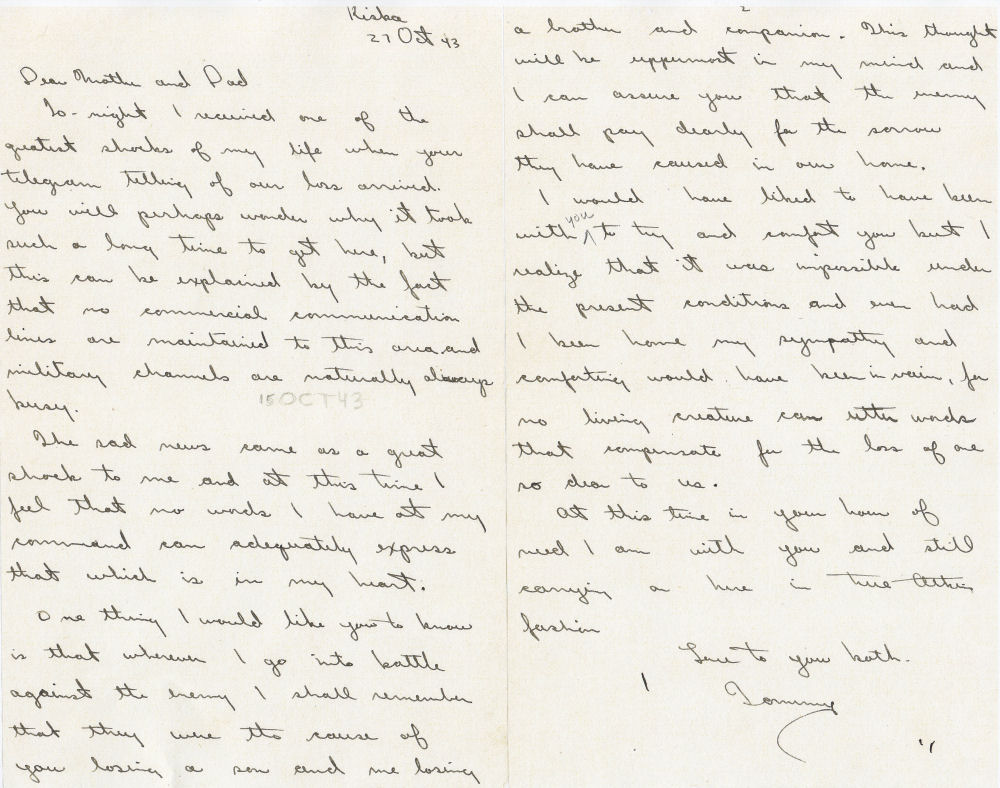 Kiska
27 Oct 43
Dear Mother and Dad
To-night I received one of the
greatest shocks of my life when your
telegram telling of our loss arrived.
You will perhaps wonder why it took
such a long time to get here, but
this can be explained by the fact
that no commercial communication
lines are maintained to this area and
military channels are naturally always
busy.
15 OCT 43
The sad news came as a great
shock to me and at this time I
feel that no words I have at my
command can adequately express
that which is in my heart.
One thing I would like you to know
is that wherever I go into battle
against the enemy I shall remember
that they were the cause of
you losing a son and me losing
2
a brother and companion. This thought
will be uppermost in my mind and
I can assure you that the enemy
shall pay dearly for the sorrow
they have caused in our home.
I would have liked to have been
with you to try and comfort you but I
realize that it was impossible under
the present conditions and even had
I been home my sympathy and
comforting would have been in vain, for
no living creature can utter words
that compensate for the loss of one
so dear to us.
At this time in your hour of
need I am with you and still
carrying on here in true
fashion
Love to you both.
Tommy